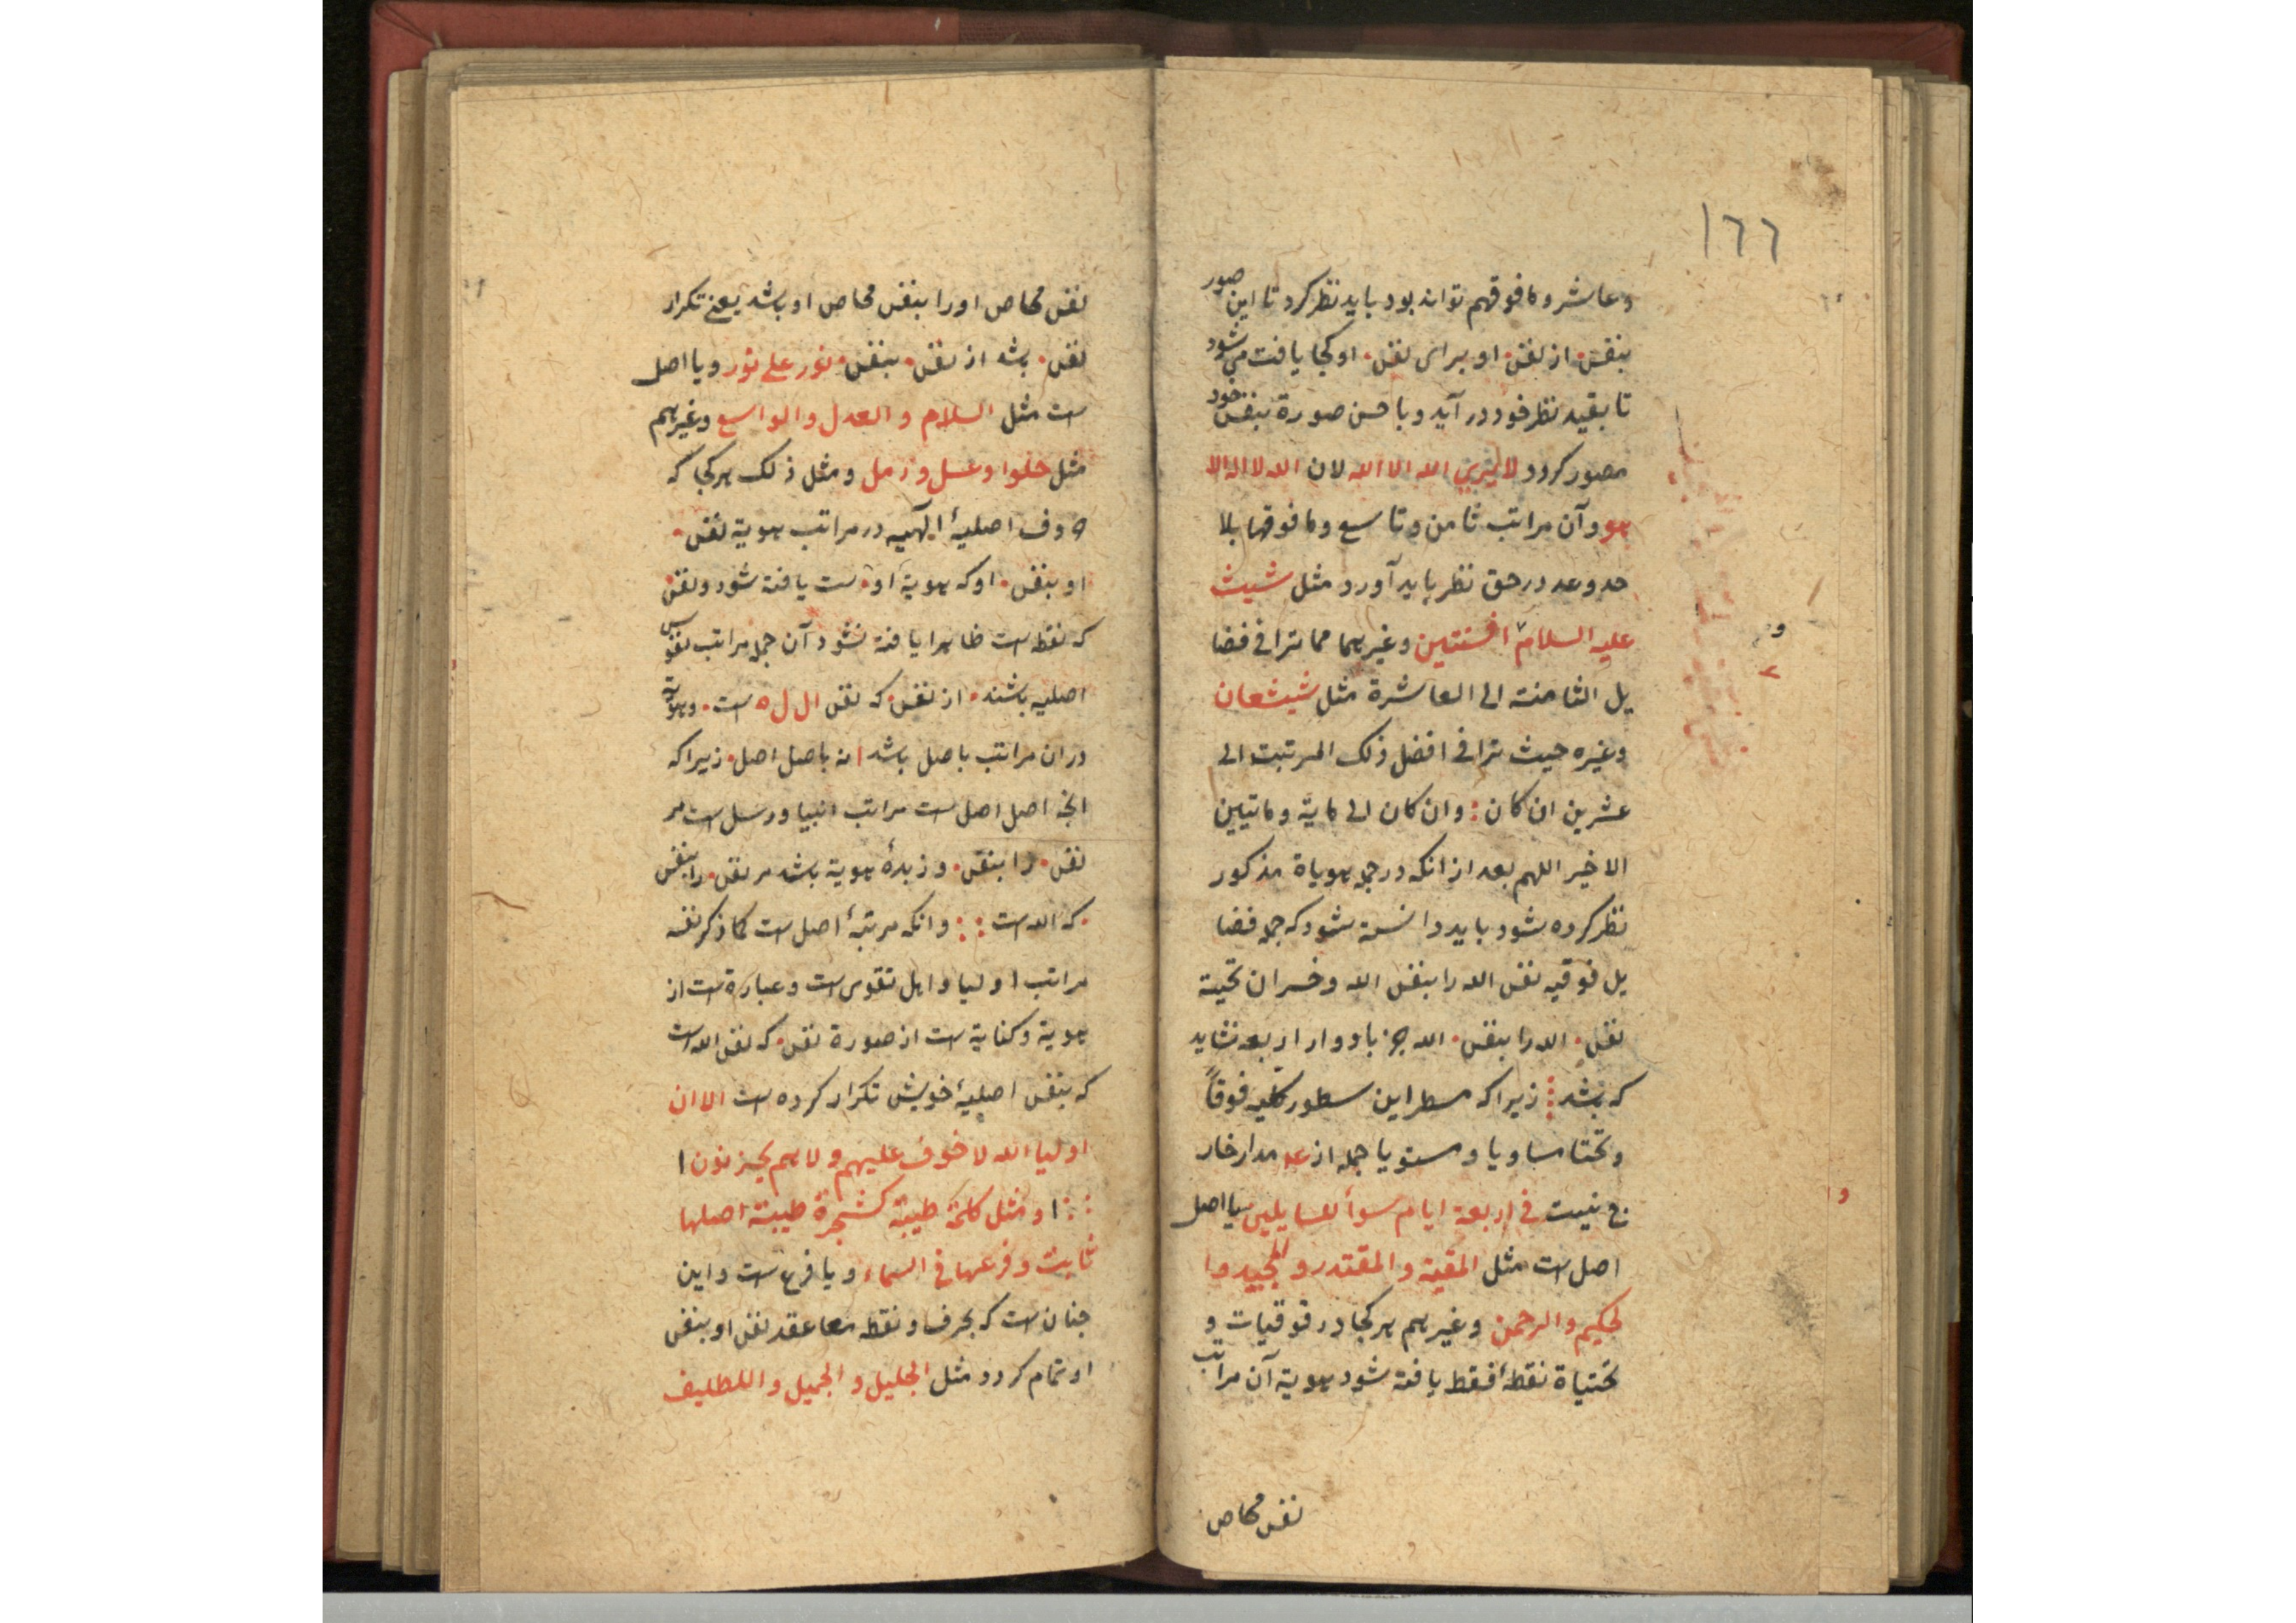 ١٦٦
وعاشر وما فوقهم تواند بود باید نظر کرد تا این صور
بنفس۰ از نفس۰ او برای نفس۰ او کجا یافت می شود
تا بقید نظر خود در آید و باحسن صورة بنفس خود
مصور کردد لایری الله الا الله لان الله لا اله الا
هو و آن مراتب ثامن و تاسع وما فوقها بلا
حد و عد در حق نظر باید آورد مثل شیث
علیه السلام افسنتین و غیرهما مما ترا فی فضا
یل الثامنة الی العاشرة مثل شیشعان
وغیره حیث ترا فی افضل ذلک المرتبت الی
عشرین ان کان : وان کان الی مایة وماتیین
الاخیر اللهم بعد از انکه در جمله هویاة مذکور
نظر کرده شود باید دانسته شود که جمله فضا
یل فوقیه نفس الله را بنفس الله و خسران تحیته
نفس۰ الله را بنفس۰ الله جز با دوار اربعه نشاید
که بشد زیرا که مسطر این سطور کلیه فوقاً
و تحتا مساویا و مستویا جمله از عد مدار خار
ج نیست فی اربعة ایام سوأ للسایلین یا اصل
اصل ست مثل المقیة و المقتدر و المجید وا
لحکیم والرحمن وغیرهم هر کجا در فوقیات و
تحتیاة نقطهٔ فقط یافته شود هویة آن مراتب
نفس محاص
نفس محاص او را بنفس محاص او بشد یعنی تکرار
نفس۰ بشد از نفس۰ بنفس۰ نور علی نور و یا اصل
ست مثل السلام و العدل و الواسع وغیرهم
مثل حلوا و عسل و زمل و مثل ذلک هر کجا که
حروف اصلیهٔ الٓهیه در مراتب هویة نفس۰
او بنفس۰ او که هویة او۰ ست یافته شود و نفس
که نقطه ست ظاهرا یافته نشود آن جمله مراتب نفوس
اصلیه بشند۰ از نفس۰ که نفس ال ل ه ست۰ و هویة
در ان مراتب باصل بشد نه باصل اصل۰ زیرا که
انجه اصل اصل ست مراتب انبیا و رسل ست مر
نفس۰ را بنفس۰ و زبدهٔ هویة بشد مر نفس۰ را بنفس
۰ که الله ست : : وانکه مرتبهٔ اصل ست کما ذکر نفسه
مراتب اولیا و اهل تقوی ست و عبارة ست از
هویة و کنایة ست از صورة نفس۰ که نفس الله ست
که بنفس اصلیهٔ خویش تکرار کرده ست الا ان
اولیا الله لا خوف علیهم ولا هم یحزنون ا
: : او مثل کلمة طیبة کشجرة طیبة اصلها
ثابت و فرعها فی السماء و یا فرع ست و این
جنان ست که بحرف و نقطه معا عقد نفس او بنفس
او تمام کردد مثل الجلیل و الجمیل و اللطلیف